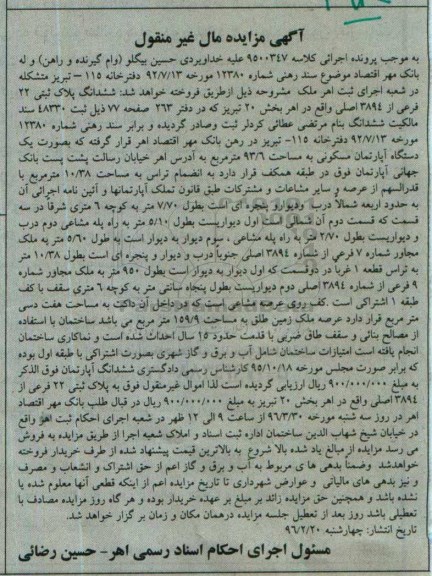 آگهی مزایده مال غیر منقول
به موجب پرونده اجرائی کلاسه ۹۵۰۰۳۴۷ علیه خداویردی حسین بیگلو (وام گیرنده و راهن) و له
بانک مهر اقتصاد موضوع سند رهنی شماره ۱۲۳۸۰ مورخه ۹۲/۷/۱۳ دفترخانه ۱۱۵ – تبریز متشکله
در شعبه اجرای ثبت اهر ملک مشروحه ذیل ازطریق فروخته خواهد شد: ششدانگ پلاک ثبتی ۲۲
فرعی از ۳۸۹۴ اصلی واقع در اهر بخش ۲۰ تبریز که در دفتر ۲۶۳ صفحه ۷۷ ذیل ثبت ۴۸۳۳۰ سند
مالکیت ششدانگ بنام مرتضی عطائی کردلر ثبت وصادر گردیده و برابر سند رهنی شماره ۱۲۳۸۰
۹۲/۷/۱۳ دفترخانه ۱۱۵- تبریز در رهن بانک مهر اقتصاد اهر قرار گرفته که بصورت یک
دستگاه آپارتمان مسکونی به مساحت ۹۳/۶ مترمربع به آدرس اهر خیابان رسالت پشت پست بانک
جهانی آپارتمان فوق در طبقه همکف قرار دارد به انضمام تراس به مساحت ۱۰/۳۸ مترمربع با
قدرالسهم از عرصه و سایر مشاعات و مشترکات طبق قانون تملک آپارتمانها و آئین نامه اجرائی آن
به حدود اربعه شمالاً درب ودیوارو پنجره ای است بطول ۷/۷۰ متر به کوچه ۶ متری شرقاً در سه
قسمت که قسمت دوم آن شمالی است اول دیواریست بطول ۵/۱۰ متر به راه پله مشاعی دوم درب
و دیواریست بطول ۲/۷۰ متر به راه پله مشاعی ، سوم دیوار به دیوار است به طول ۵/۶۰ متر به ملک
مجاور شماره ۷ فرعی از شماره ۳۸۹۴ اصلی جنوباً درب و دیوار و پنجره ای است بطول ۱۰/۳۸ متر
به تراس قطعه ۱ غربا در دوقسمت که اول دیوار به دیوار است بطول ۹۵۰ متر به ملک مجاور شماره
۹ فرعی از شماره ۳۸۹۴ اصلی دوم دیواریست بطول پنجاه سانتی متر به کوچه ۶ متری سقف با کف
طبقه ۱ اشتراکی است .کف روی عرصه مشاعی است که در داخل آن داکت به مساحت هفت دسی
متر مربع قرار دارد عرصه ملک زمین طلق به مساحت ۱۵۹/۹ متر مربع می باشد ساختمان با استفاده
از مصالح بنائی و سقف طاق ضربی با قدمت حدود ۱۵ سال احداث شده است و نماکاری ساختمان
انجام یافته است امتیازات ساختمان شامل آب و برق و گاز شهری بصورت اشتراکی با طبقه اول بوده
که برابر صورت مجلس مورخه ۹۵/۱۰/۱۸ کارشناس رسمی دادگستری ششدانگ آپارتمان فوق الذکر
به مبلغ ۹۰۰/۰۰۰/۰۰۰ ریال ارزیابی گردیده است لذا اموال غیرمنقول فوق به پلاک ثبتی ۲۲ فرعی از
۳۸۹۴ اصلی واقع در اهر بخش ۲۰ تبریز به مبلغ ۹۰۰/۰۰۰/۰۰۰ ریال در قبال طلب بانک مهر اقتصاد
اهر در روز سه شنبه مورخه ۹۶/۳/۳۰ از ساعت ۹ الی ۱۲ ظهر در شعبه اجرای احکام ثبت اهر واقع
در خیابان شیخ شهاب الدین ساختمان اداره ثبت اسناد و املاک شعبه اجرا از طریق مزایده به فروش
می رسد مزایده از مبالغ یاد شده بالا شروع به بالاترین قیمت پیشنهاد شده از طرف خریدار فروخته
خواهدشد وضمناً بدهی ها ی مربوط به آب و برق و گاز اعم از حق اشتراک و انشعاب و مصرف
و نیز بدهی های مالیاتی و عوارض شهرداری تا تاریخ مزایده اعم از اینکه قطعی آنها معلوم شده یا
نشده باشد و همچنین حق مزایده زائد بر مبلغ بر عهده خریدار بوده و هر گاه روز مزایده مصادف با
تعطیلی باشد روز بعد از تعطیل جلسه مزایده درهمان مکان و زمان بر گزار خواهد شد.
تاریخ انتشار: چهارشنبه ۹۶/۲/۲۰
مسئول اجرای احکام اسناد رسمی اهر– حسین رضائی